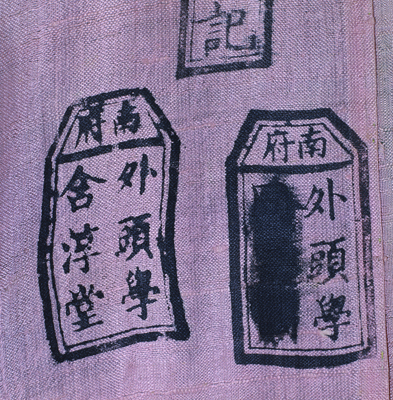 記
南府
外頭學
南府
外頭學
含淳堂